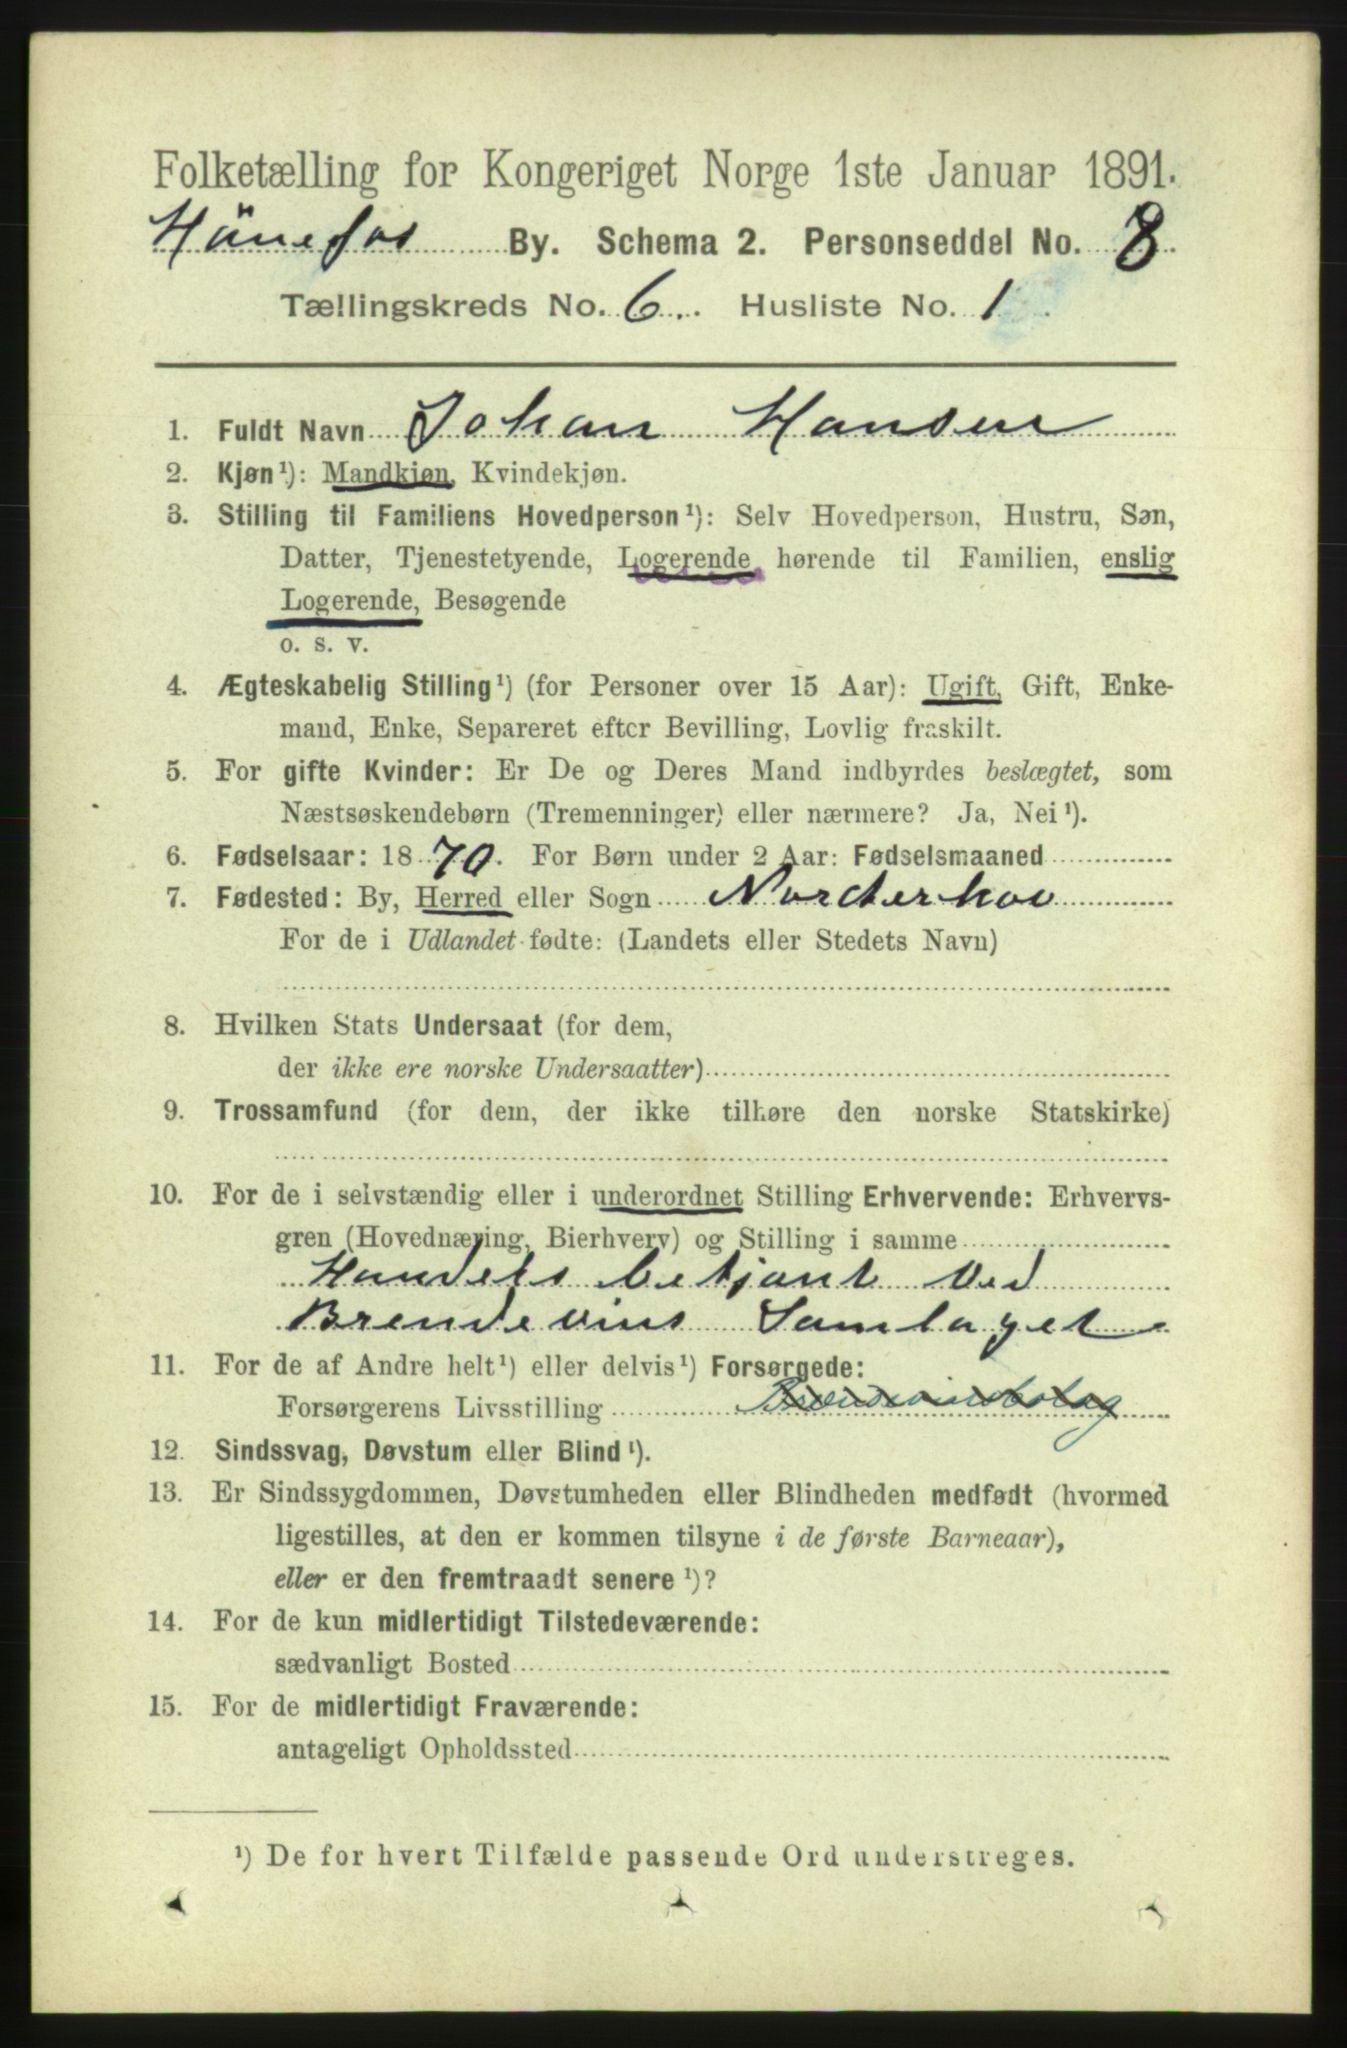 Folketælling for Kongeriget Norge 1ste Januar 1891.
Hönefos By. Schema 2. Personseddel No. 8
Tællingskreds No. 6. Husliste No. 1
1. Fuldt Navn Johan Hansen
2. Kjøn ¹): Mandkjøn, Kvindekjøn.
3. Stilling til Familiens Hovedperson ¹): Selv Hovedperson, Hustru, Søn,
Datter, Tjenestetyende, Logerende hørende til Familien, enslig
Logerende, Besøgende
o. s. v.
4. Ægteskabelig Stilling ¹) (for Personer over 15 Aar): Ugift, Gift, Enke-
mand, Enke, Separeret efter Bevilling, Lovlig fraskilt.
5. For gifte Kvinder: Er De og Deres Mand indbyrdes beslægtet, som
Næstsøskendebørn (Tremenninger) eller nærmere? Ja, Nei ¹).
6. Fødselsaar: 1870. For Børn under 2 Aar: Fødselsmaaned
7. Fødested: By, Herred eller Sogn Norderhov
For de i Udlandet fødte: (Landets eller Stedets Navn)
8. Hvilken Stats Undersaat (for dem,
der ikke ere norske Undersaatter)
9. Trossamfund (for dem, der ikke tilhøre den norske Statskirke)
10. For de i selvstændig eller i underordnet Stilling Erhvervende: Erhvervs-
gren (Hovednæring, Bierhverv) og Stilling i samme
Handels betjent Ved
Brendevins Samlaget
11. For de af Andre helt ¹) eller delvis ¹) Forsørgede:
Forsørgerens Livsstilling Brændevinsbolag
12. Sindssvag, Døvstum eller Blind ¹).
13. Er Sindssygdommen, Døvstumheden eller Blindheden medfødt (hvormed
ligestilles, at den er kommen tilsyne i de første Barneaar),
eller er den fremtraadt senere ¹)?
14. For de kun midlertidigt Tilstedeværende:
sædvanligt Bosted
15. For de midlertidigt Fraværende:
antageligt Opholdssted
¹) De for hvert Tilfælde passende Ord understreges.